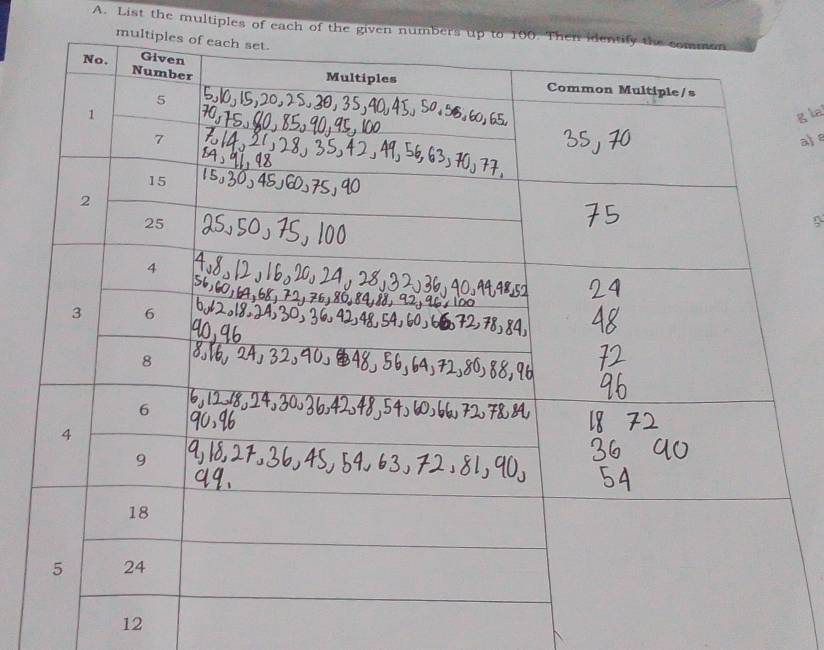 A. List the multiples of each of the given numbers up to 100. Then identify the common
multiples of each set.
No. Given Number Multiples Common Multiple/s
1 5 5,10,15,20,25,30,35,40,45,50,55,60,65,
70,75,80,85,90,95,100
7 7,14,21,28,35,42,49,56,63,70,77,
84,91,98
35,70
2 15 15,30,45,60,75,90
25 25,50,75,100
75
3 4 4,8,12,16,20,24,28,32,36,40,44,48,52
56,60,64,68,72,76,80,84,88,92,96,100
6 6,12,18,24,30,36,42,48,54,60,66,72,78,84,
90,96
8 8,16,24,32,40,48,56,64,72,80,88,96
24
48
72
96
4 6 6,12,18,24,30,36,42,48,54,60,66,72,78,84
90,96
9 9,18,27,36,45,54,63,72,81,90,
99.
18 72
36 90
54
5 18
24
12